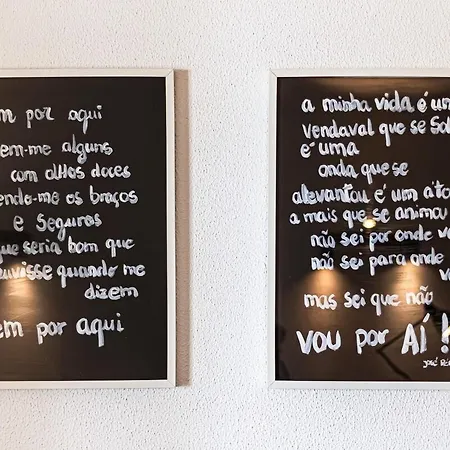 em por aqui
em-me alguns
com olhos doces
endo-me os braços
e seguros
que seria bom que
ouvisse quando me
dizem
em por aqui
a minha vida é um
vendaval que se sol
é uma
onda que se
alevantou é um áto
a mais que se animou
não sei por onde vo
não sei para onde
vo
mas sei que não
VOU por AÍ!
José Ré